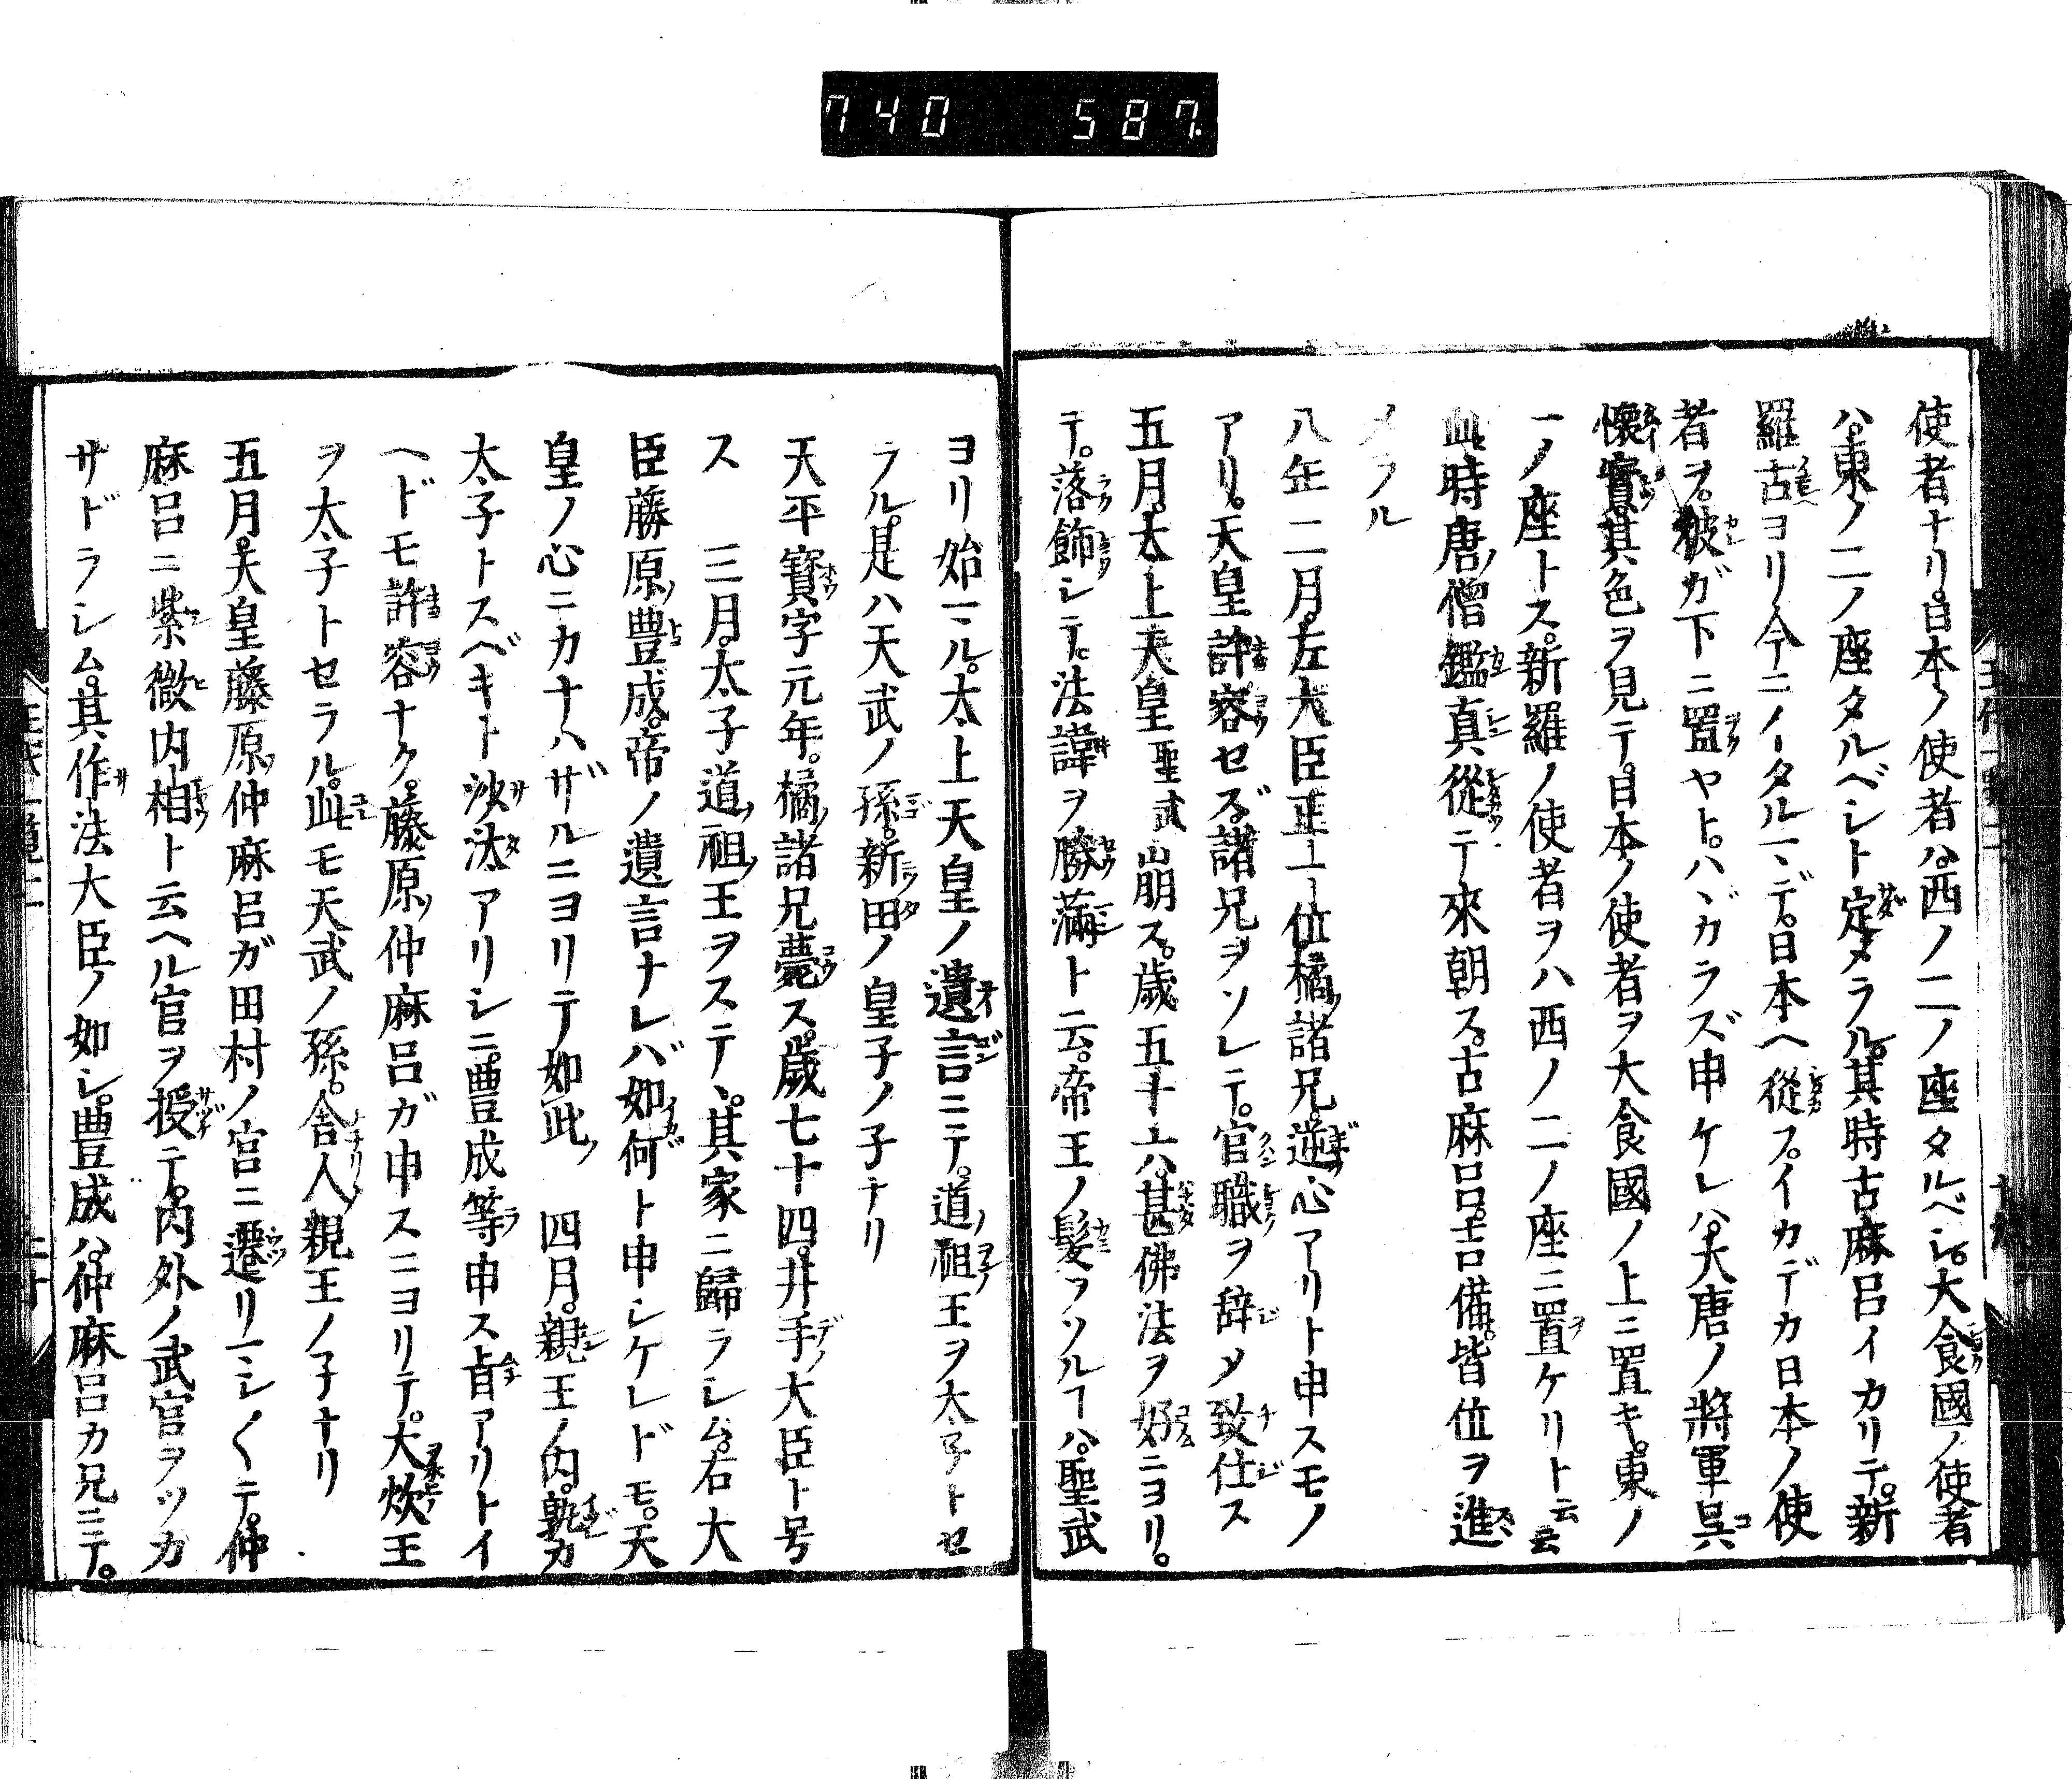 740 587
使者ナリ。日本ノ使者ハ。西ノ二ノ座タルベシ。大食國ノ使者
ハ。東ノ二ノ座タルベシト定メラル。其時古麻呂イカリテ。新
羅古ヨリ今ニイタルマデ。日本ヘ從フ。イカデカ日本ノ使
者ヲ。彼ガ下ニ置ヤト。ハヾカラズ申ケレハ。大唐ノ將軍呉
懷寶。其色ヲ見テ。日本ノ使者ヲ大食國ノ上ニ置キ。東ノ
一ノ座トス。新羅ノ使者ヲハ西ノ二ノ座ニ置ケリト云云
此時唐ノ僧鑑真從テ來朝ス。古麻呂。吉備。皆位ヲ進
メラル
八年二月。左大臣正一位橘ノ諸兄。逆心アリト申スモノ
アリ。天皇許容セズ。諸兄ヲソレテ。官職ヲ辞メ致仕ス
五月。太上天皇聖武崩ス。歳五十六。甚佛法ヲ好ニヨリ。
テ。落飾シテ。法諱ヲ勝滿ト云。帝王ノ髮ヲソルヿハ。聖武
ヨリ始マル。太上天皇ノ遺言ニテ。道ノ祖王ヲ太子トセ
ラル。是ハ天武ノ孫。新田ノ皇子ノ子ナリ
天平寳字元年。橘ノ諸兄薨ス。歳七十四。井手ノ大臣ト号
ス　三月。太子道ノ祖ノ王ヲステヽ。其家ニ歸ラシム。右大
臣藤原ノ豊成。帝ノ遺言ナレバ如何ト申シケレドモ。天
皇ノ心ニカナハザルニヨリテ如此ノ　四月。親王ノ内。孰カ
太子トスベキト沙汰アリシニ。豊成等申ス旨アリトイ
ヘドモ許容ナク。藤原ノ仲麻呂ガ申スニヨリテ。大炊王
ヲ太子トセラル。此モ天武ノ孫。舎人親王ノ子ナリ
五月。天皇藤原ノ仲麻呂ガ田村ノ宮ニ遷リマシ〱テ。仲
麻呂ニ紫微内相ト云ヘル官ヲ授テ。内外ノ武官ヲツカ
サドラシム。其作法大臣ノ如シ。豊成ハ。仲麻呂カ兄ニテ。